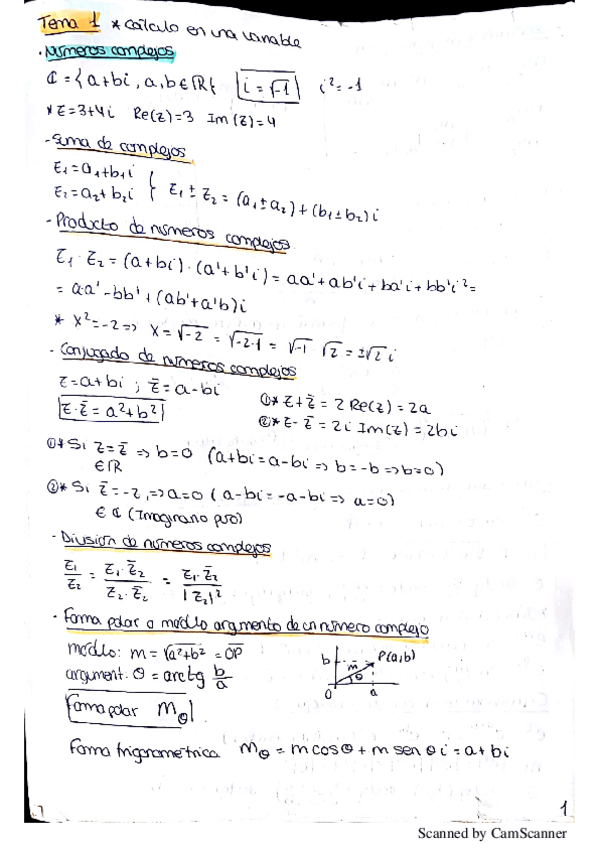 Tema 1 * cálculo en una variable
· Números complejos
ℂ = {a+bi, a,b∈ℝ} i = √-1 i²=-1
* z=3+4i Re(z)=3 Im(z)=4
- Suma de complejos
z₁=a₁+b₁i
z₂=a₂+b₂i } z₁ ± z₂ = (a₁±a₂)+(b₁±b₂)i
- Producto de números complejos
z₁·z₂ = (a+bi)·(a'+b'i) = aa'+ab'i+ba'i+bb'i²=
= a·a'-bb'+(ab'+a'b)i
* x²=-2 => x=√-2 = √-2·1 = √-1 √2 = ±√2 i
- Conjugado de números complejos
z=a+bi ; z̄=a-bi
z·z̄ = a²+b²
①* z+z̄ = 2 Re(z) = 2a
②* z-z̄ = 2i Im(z) = 2bi
①* Si z=z̄ => b=0 (a+bi=a-bi => b=-b => b=0)
∈ℝ
②* Si z̄=-z, => a=0 (a-bi=-a-bi => a=0)
∈ ℂ (Imaginario puro)
- División de números complejos
z₁/z₂ = z₁·z̄₂/z₂·z̄₂ = z₁·z̄₂/|z₂|²
- Forma polar o módulo argumento de un número complejo
módulo: m = √a²+b² = OP
argument: θ = arctg b/a
Forma polar m_θ
b m P(a,b)
θ
0 a
Forma trigonométrica m_θ = m cos θ + m sen θ i = a+bi
1
Scanned by CamScanner